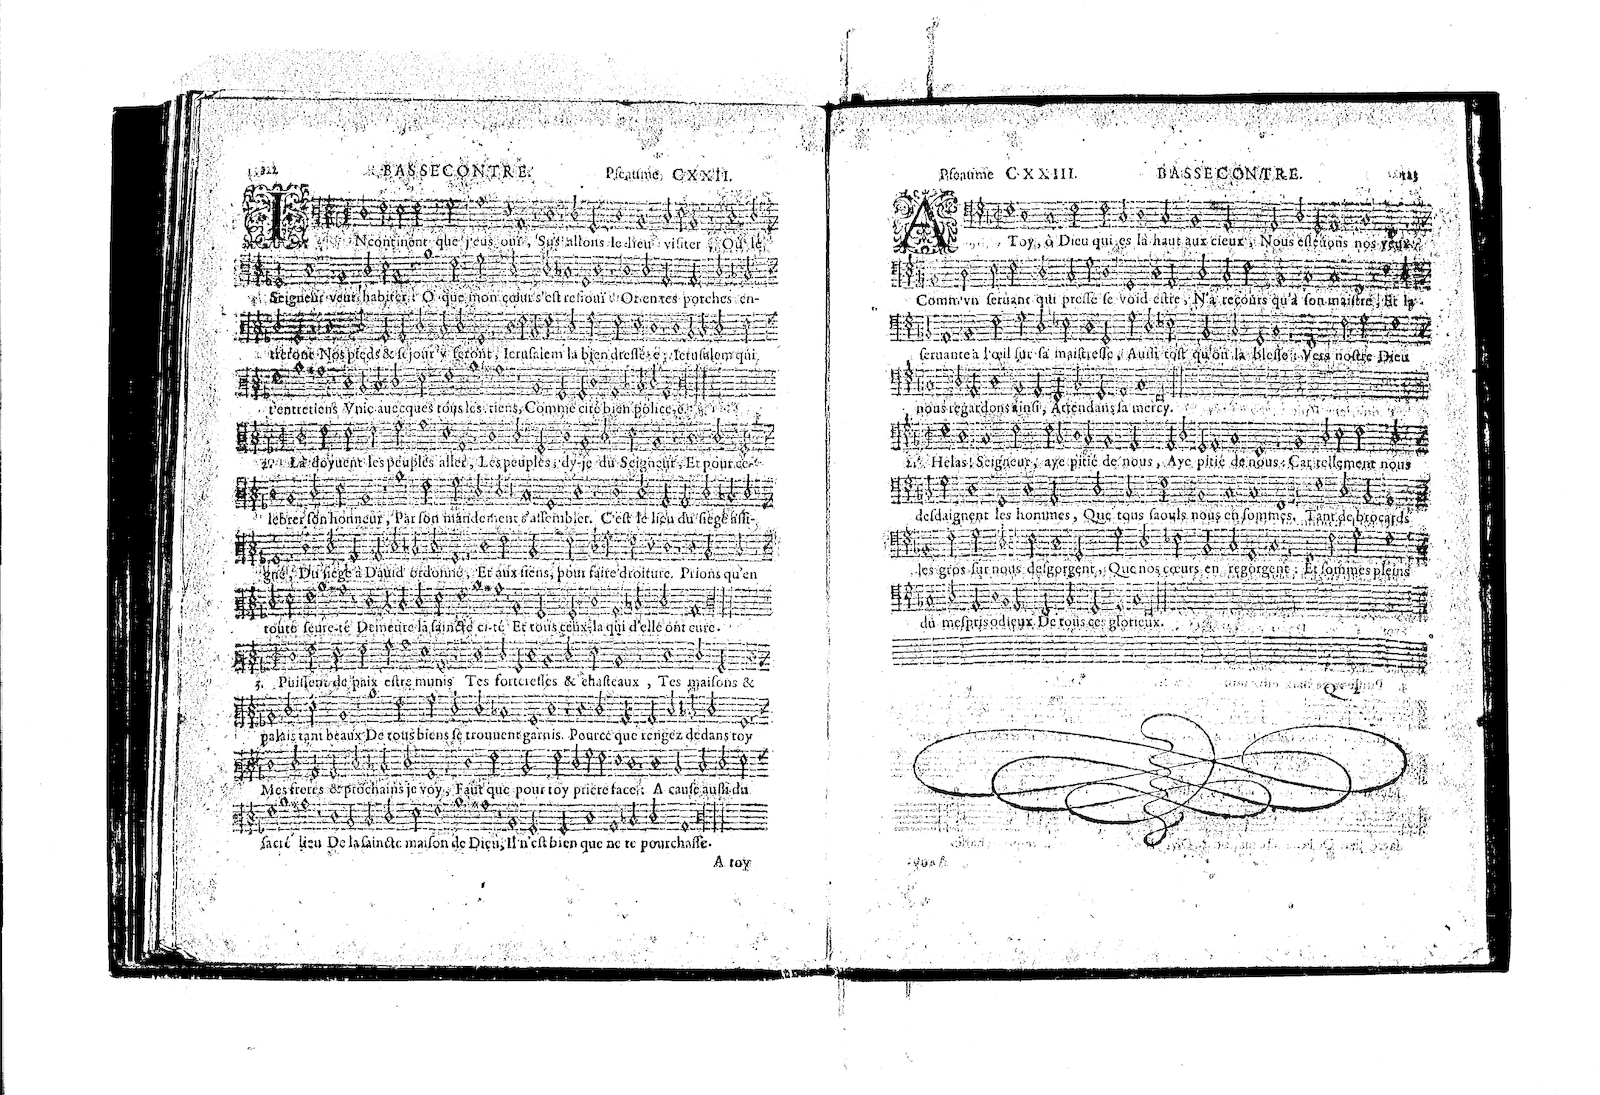 122 BASSECONTRE. Pseaume CXXII.
INcontinent que j'eus ouï, Sus allons le lieu visiter, Où le
Seigneur veut habiter: O que mon cœur s'est resiouï! Or en tes porches en-
treront Nos pieds & sejour y feront, Ierusalem la bien dressé-e, Ierusalem qui
t'entretiens Vnie auecques tous les tiens, Comme cité bien policé-e.
2. Là doyuent les peuples aller, Les peuples, dy-je du Seigneur, Et pour ce-
lebrer son honneur, Par son mandement s'assembler. C'est le lieu du siege assi-
gné, Du siege à Dauid ordonné, Et aux siens, pour faire droiture. Prions qu'en
toute seure-té Demeure la saincte ci-té Et tous ceux-la qui d'elle ont cure.
3. Puissent de paix estre munis Tes forteresses & chasteaux, Tes maisons &
palais tant beaux De tous biens se trouuent garnis. Pource que rengez dedans toy
Mes freres & prochains je voy, Faut que pour toy priere face: A cause aussi du
sacré lieu De la saincte maison de Dieu, Il n'est bien que ne te pourchasse.
A toy
Pseaume CXXIII. BASSECONTRE. 123
A Toy, ô Dieu qui es là haut aux cieux, Nous esleuons nos yeux
Comm' vn seruant qui pressé se void estre, N'a recours qu'à son maistre, Et la
seruante a l'œil sur sa maistresse, Aussi tost qu'on la blesse: Vers nostre Dieu
nous regardons ainsi, Attendans sa mercy.
2. Helas! Seigneur, aye pitié de nous, Aye pitié de nous: Car tellement nous
desdaignent les hommes, Que tous saouls nous en sommes. Tant de brocards
les gros sur nous desgorgent, Que nos cœurs en regorgent: Et sommes pleins
du mespris odieux De tous ces glorieux.